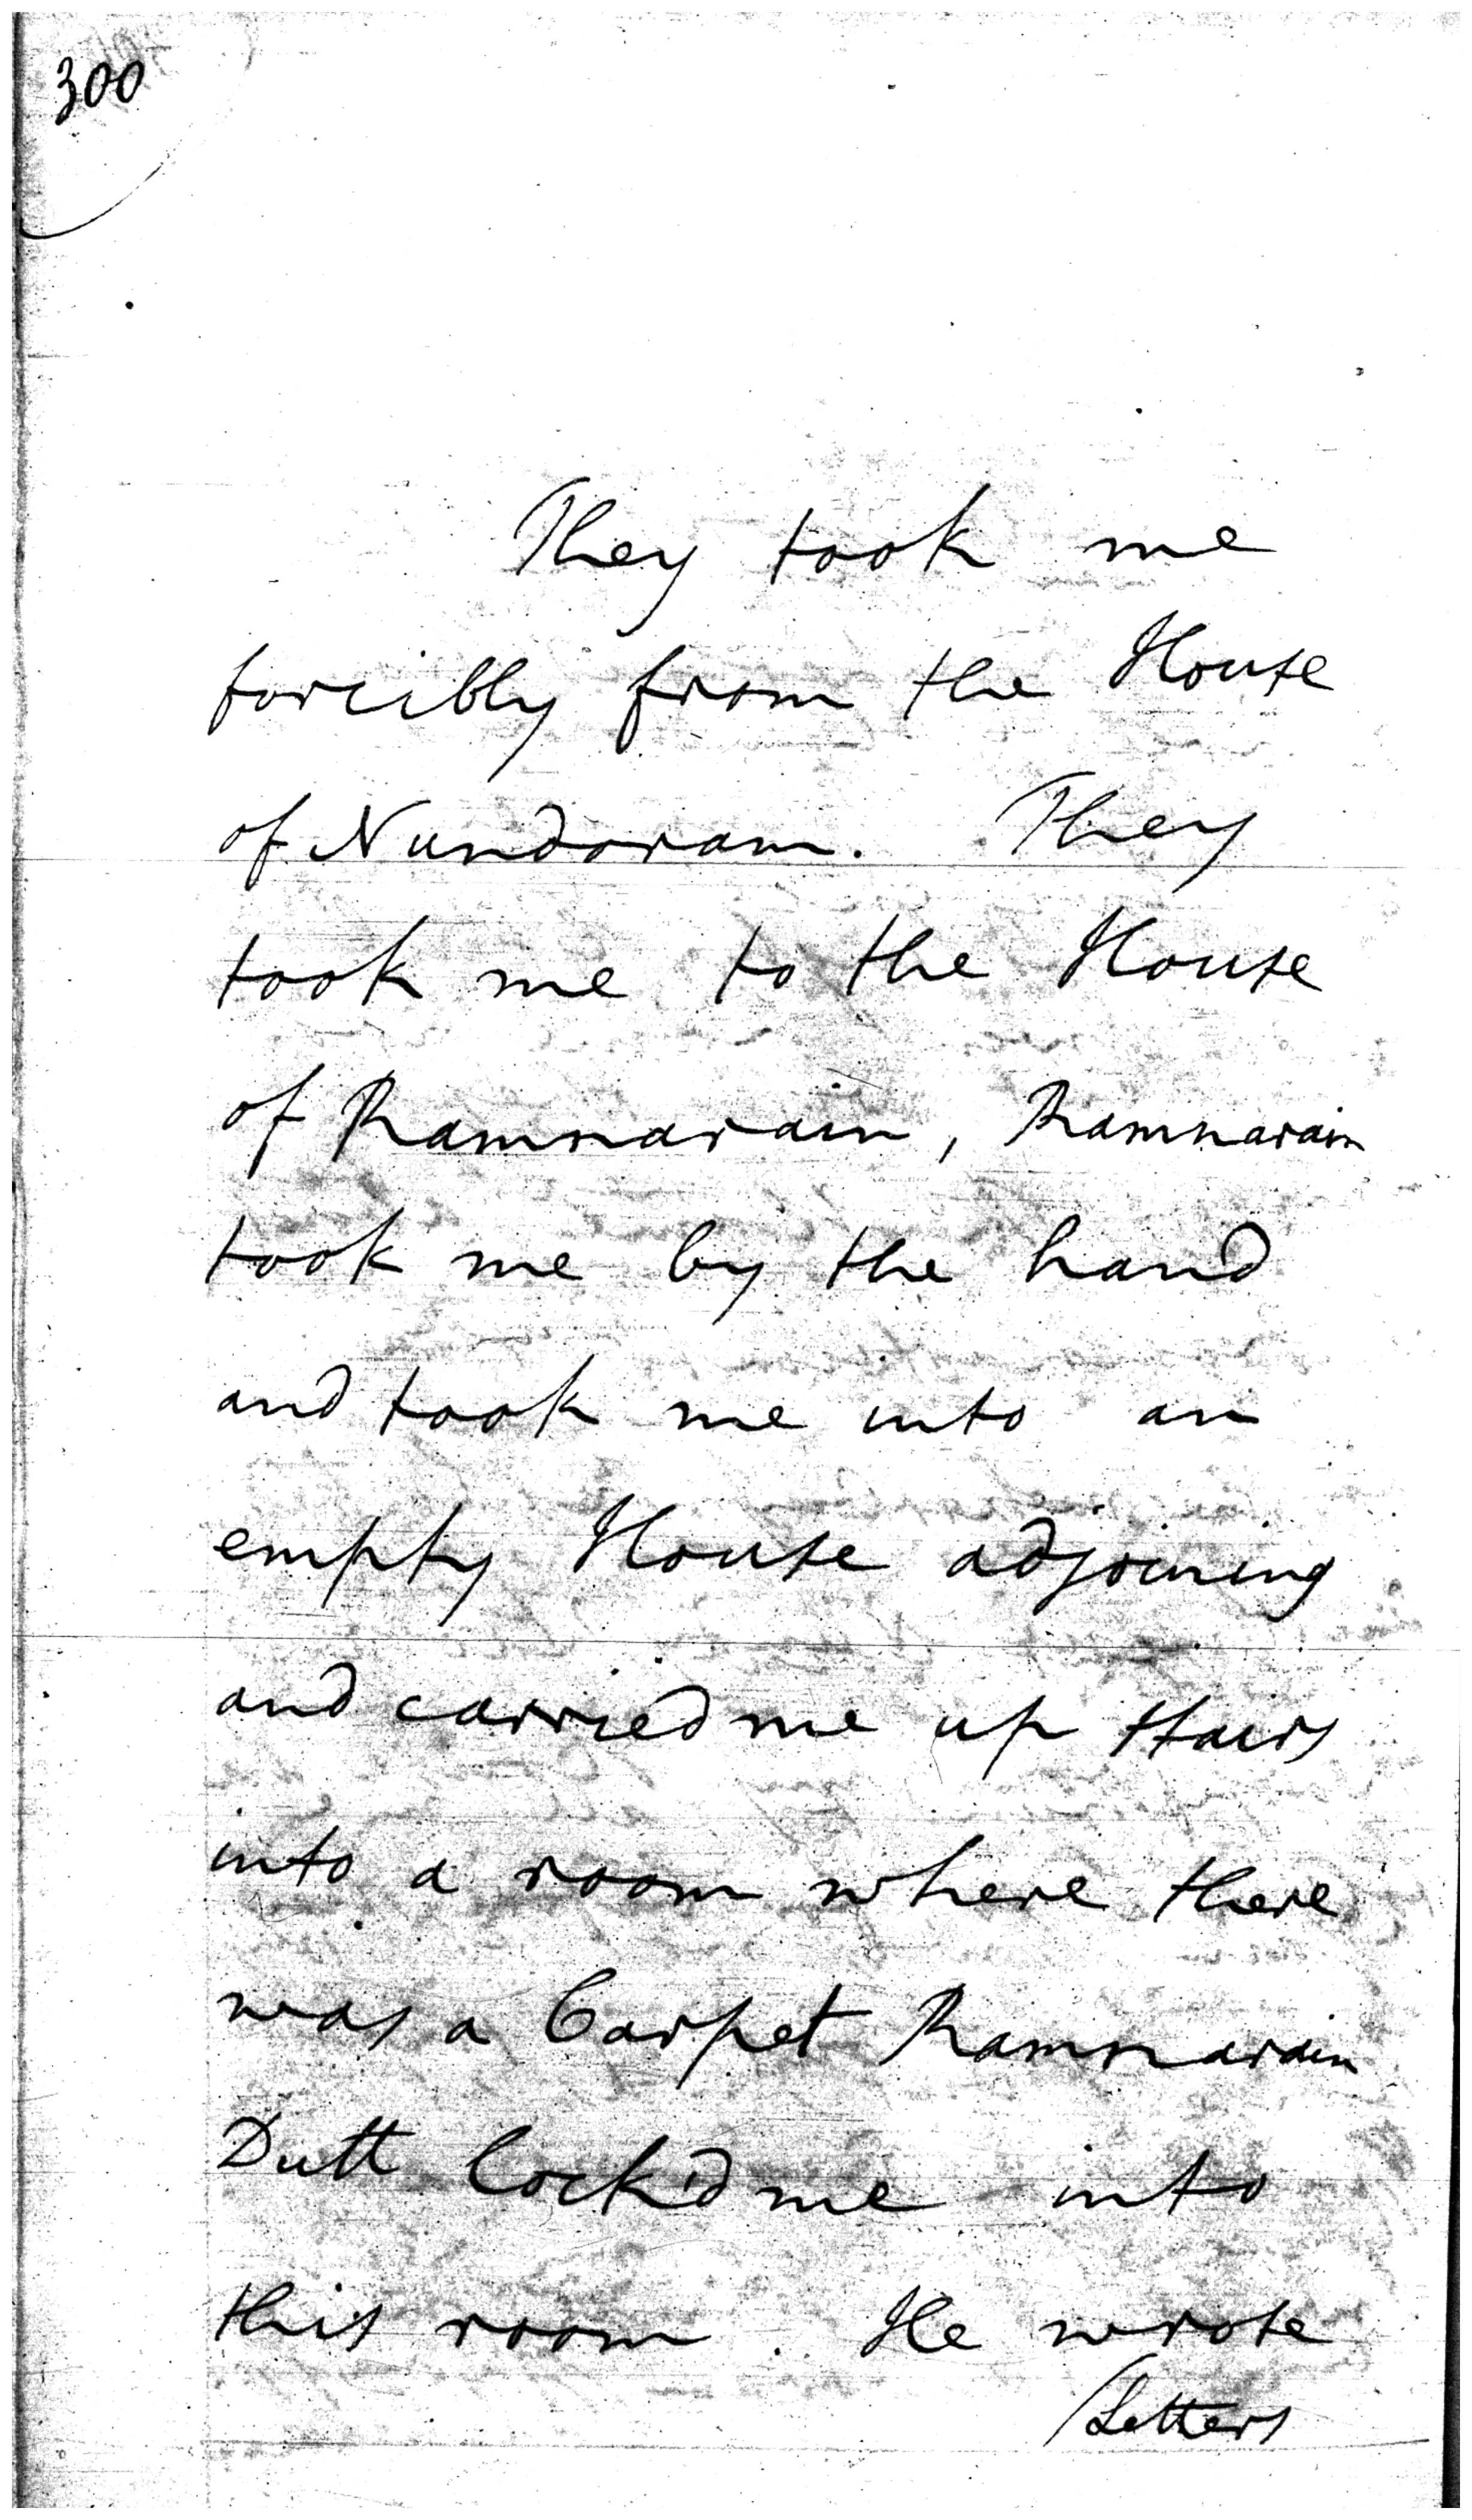 300
They took me
forcibly from the House
of Nundoram. They
took me to the House
of Ramnarain, Ramnarain
took me by the hand
and took me into an
empty House adjoining
and carried me up stairs
into a room where there
was a Carpet Ramnarain
Dutt lock'd me into
this room. He wrote
Letters